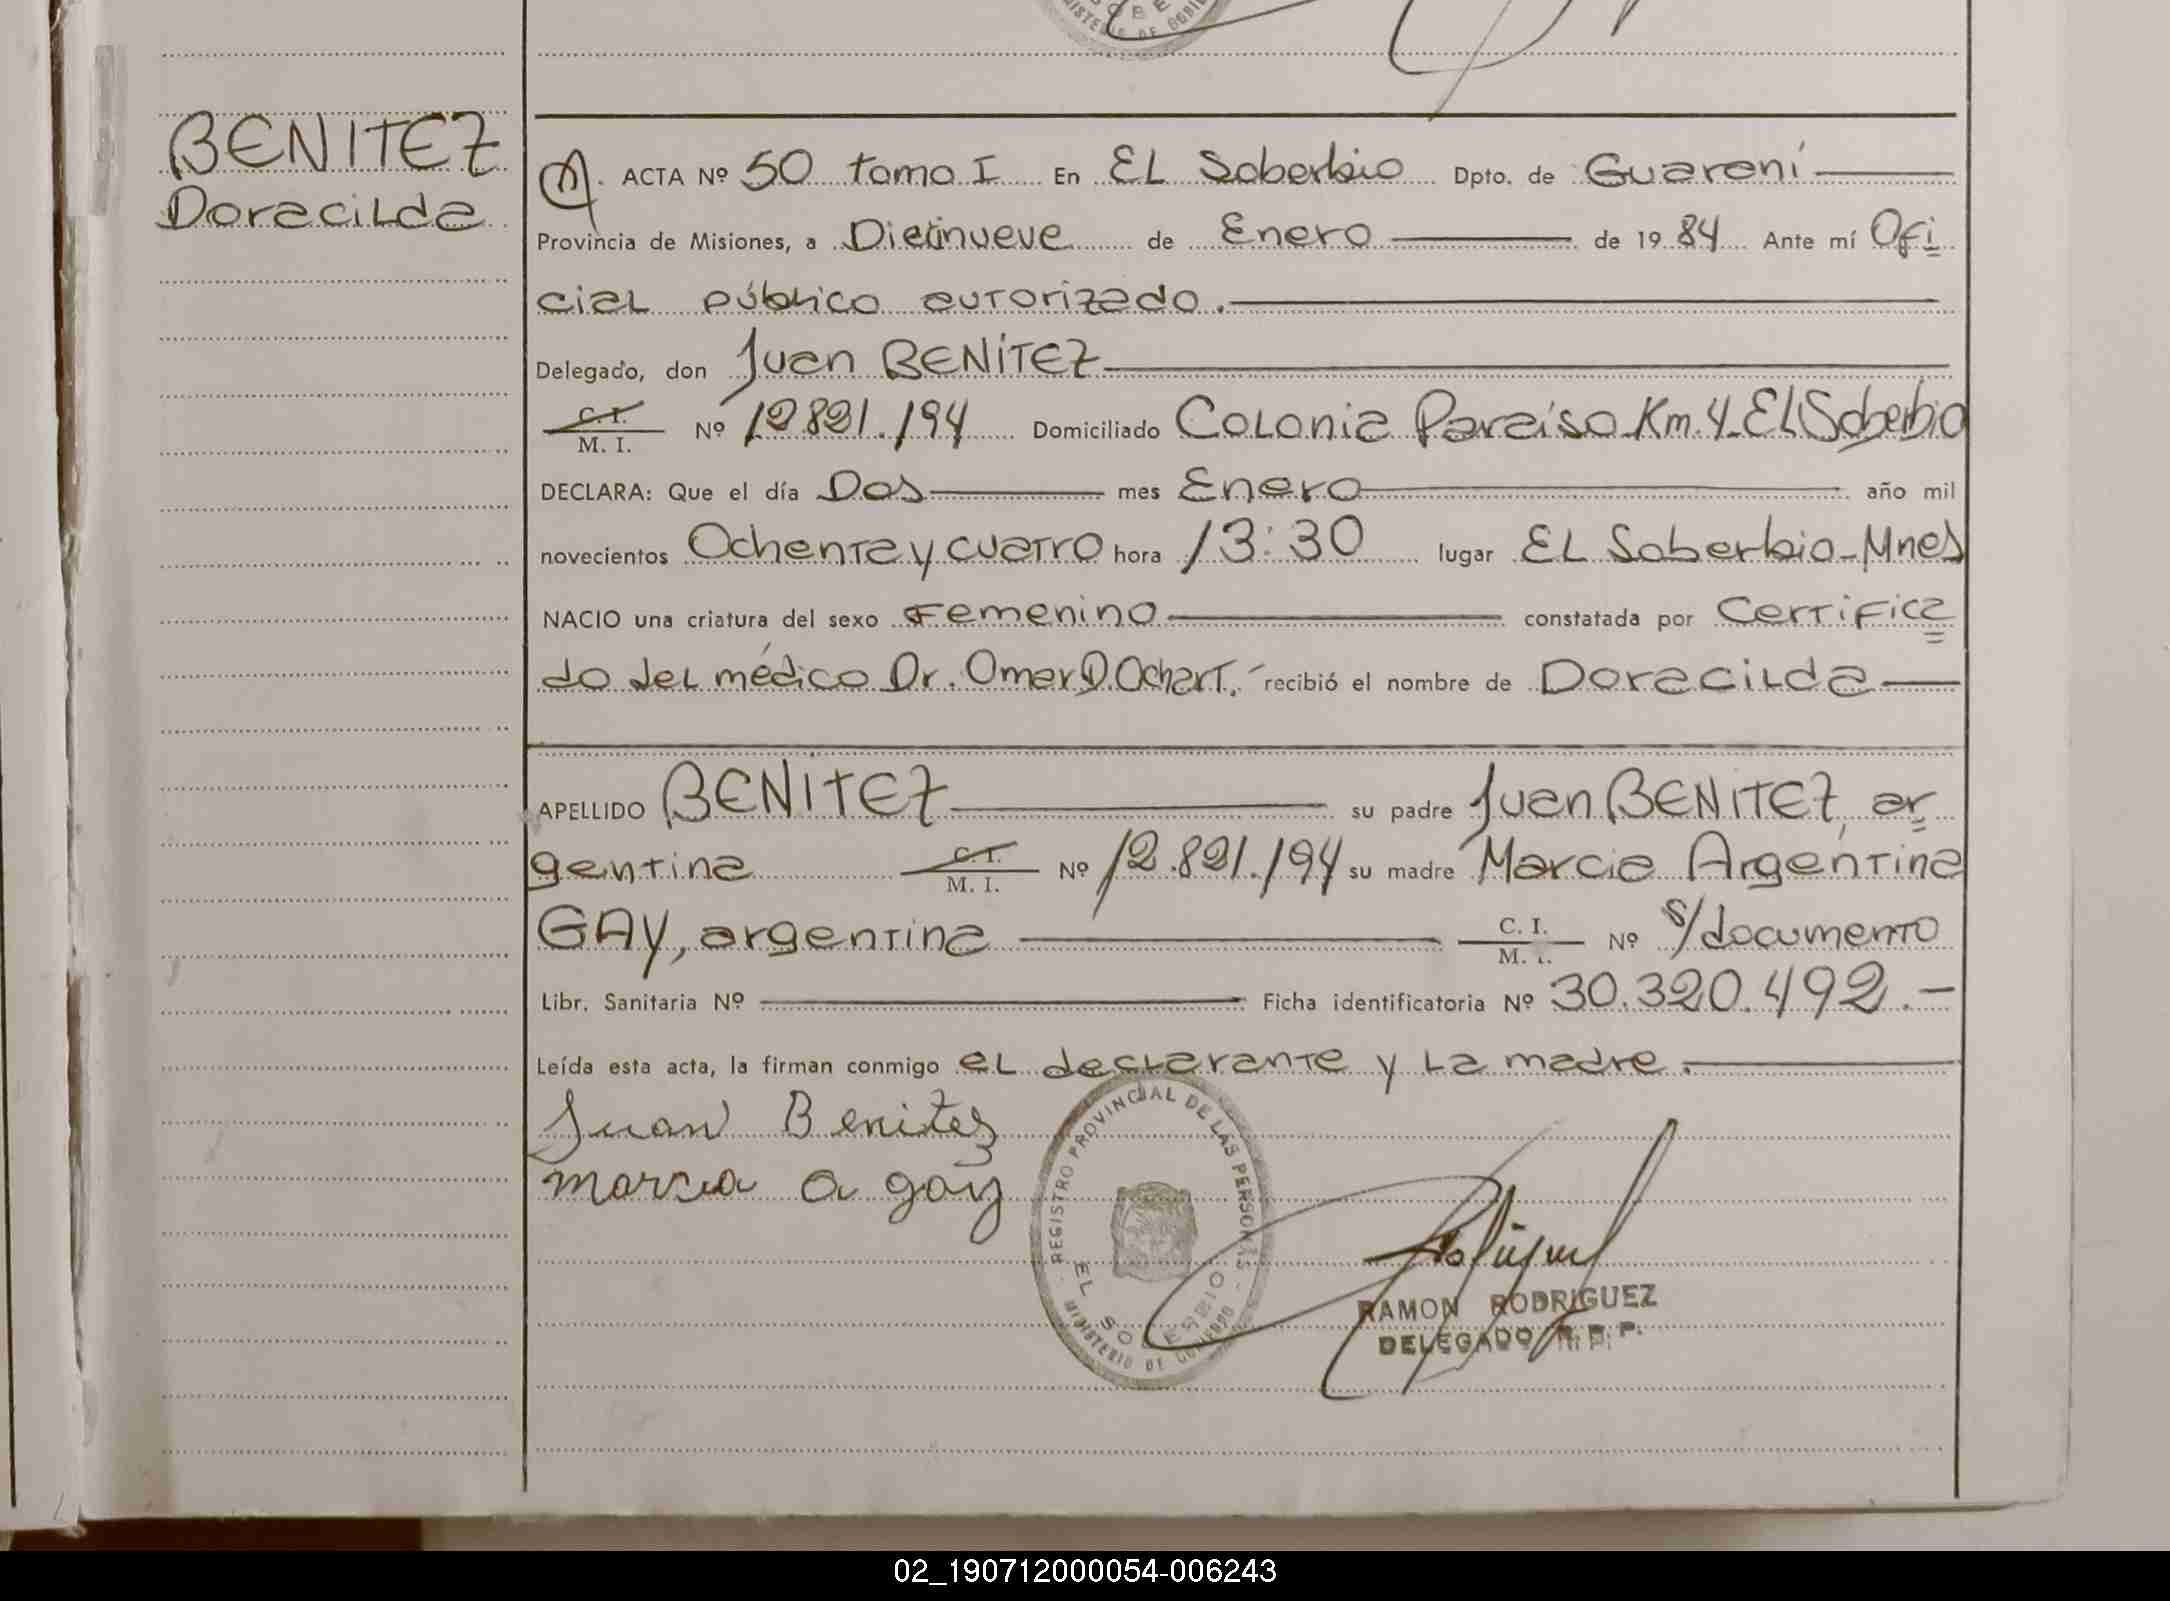 BENITEZ
Doracilda
ACTA Nº 50 tomo I En EL Soberbio Dpto. de Guaraní
Provincia de Misiones, a Diecinueve de Enero de 1984 Ante mí Ofi
cial público autorizado.
Delegado, don Juan BENITEZ
C. I.
M. I. Nº 12821.194 Domiciliado Colonia Paraíso Km. 4-EL Soberbio
DECLARA: Que el día Dos mes Enero año mil
novecientos Ochenta y cuatro hora 13:30 lugar EL Soberbio-Mnes
NACIO una criatura del sexo Femenino constatada por Certifica
do del médico Dr. Omar D. Ochart. recibió el nombre de Doracilda
APELLIDO BENITEZ su padre Juan BENITEZ, ar
gentina C. I. M. I. Nº 12.821.194 su madre Marcia Argentina
GAY, argentina C. I. M. I. Nº s/documento
Libr. Sanitaria Nº Ficha identificatoria Nº 30.320.492.-
Leída esta acta, la firman conmigo el declarante y la madre.
Juan Benitez
marcia a gay
REGISTRO PROVINCIAL DE LAS PERSONAS
EL SOBERBIO
MINISTERIO DE GOBIERNO
RAMON RODRIGUEZ
DELEGADO R. P. P.
02_190712000054-006243